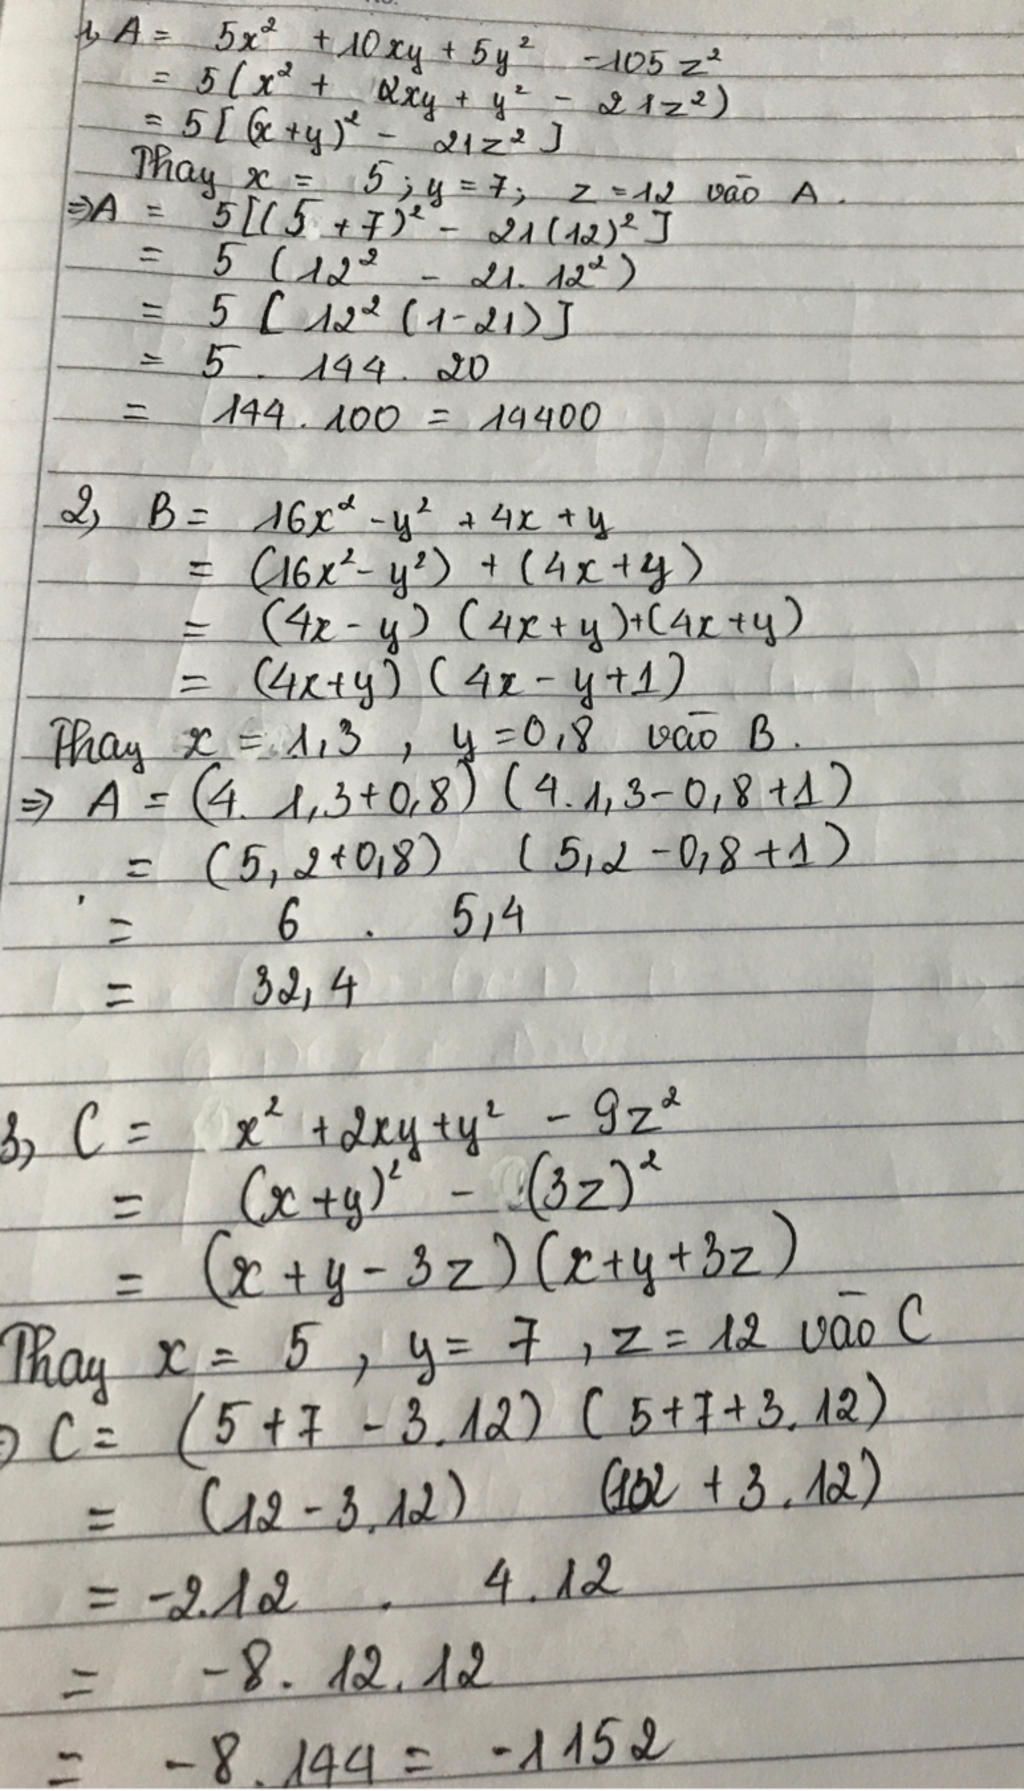 1, A = 5x² + 10xy + 5y² - 105z²
= 5(x² + 2xy + y² - 21z²)
= 5[(x+y)² - 21z²]
Thay x = 5; y = 7; z = 12 vào A.
⇒ A = 5[(5 + 7)² - 21(12)²]
= 5 (12² - 21. 12²)
= 5 [12² (1-21)]
= 5 . 144 . 20
= 144 . 100 = 14400
2, B = 16x² - y² + 4x + y
= (16x² - y²) + (4x + y)
= (4x - y) (4x + y) + (4x + y)
= (4x + y) (4x - y + 1)
Thay x = 1,3 , y = 0,8 vào B.
⇒ A = (4. 1,3 + 0,8) (4. 1,3 - 0,8 + 1)
= (5,2 + 0,8) (5,2 - 0,8 + 1)
= 6 . 5,4
= 32,4
3, C = x² + 2xy + y² - 9z²
= (x + y)² - (3z)²
= (x + y - 3z) (x + y + 3z)
Thay x = 5 , y = 7 , z = 12 vào C
⇒ C = (5 + 7 - 3. 12) (5 + 7 + 3. 12)
= (12 - 3. 12) (12 + 3. 12)
= -2.12 . 4 . 12
= -8. 12. 12
= -8 . 144 = -1152